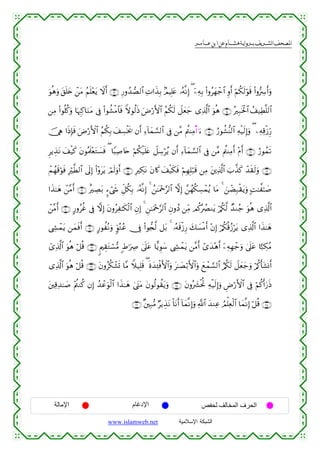 المصحف الشريف برواية هشام عن ابن عامر
وَأَسِرُّواْ قَوْلَكُمْ أَوِ ٱجْهَرُواْ بِهِۦٓ ۖ إِنَّهُۥ عَلِيمُۢ بِذَاتِ ٱلصُّدُورِ ۝ أَلَا يَعْلَمُ مَنْ خَلَقَ وَهُوَ
ٱللَّطِيفُ ٱلْخَبِيرُ ۝ هُوَ ٱلَّذِى جَعَلَ لَكُمُ ٱلْأَرْضَ ذَلُولًا فَٱمْشُواْ فِى مَنَاكِبِهَا وَكُلُواْ مِن
رِّزْقِهِۦ ۖ وَإِلَيْهِ ٱلنُّشُورُ ۝ ءَاأَمِنتُم مَّن فِى ٱلسَّمَآءِ أَن يَخْسِفَ بِكُمُ ٱلْأَرْضَ فَإِذَا هِىَ
تَمُورُ ۝ أَمْ أَمِنتُم مَّن فِى ٱلسَّمَآءِ أَن يُرْسِلَ عَلَيْكُمْ حَاصِبًا ۖ فَسَتَعْلَمُونَ كَيْفَ نَذِيرِ
۝ وَلَقَدْ كَذَّبَ ٱلَّذِينَ مِن قَبْلِهِمْ فَكَيْفَ كَانَ نَكِيرِ ۝ أَوَلَمْ يَرَوْاْ إِلَى ٱلطَّيْرِ فَوْقَهُمْ
صَٰٓفَّٰتٍ وَيَقْبِضْنَ ۚ مَا يُمْسِكُهُنَّ إِلَّا ٱلرَّحْمَٰنُ ۚ إِنَّهُۥ بِكُلِّ شَىْءِۭ بَصِيرٌ ۝ أَمَّنْ هَٰذَا
ٱلَّذِى هُوَ جُندٌ لَّكُمْ يَنصُرُكُم مِّن دُونِ ٱلرَّحْمَٰنِ ۚ إِنِ ٱلْكَٰفِرُونَ إِلَّا فِى غُرُورٍ ۝ أَمَّنْ
هَٰذَا ٱلَّذِى يَرْزُقُكُمْ إِنْ أَمْسَكَ رِزْقَهُۥ ۚ بَل لَّجُّواْ فِى عُتُوٍّ وَنُفُورٍ ۝ أَفَمَن يَمْشِى
مُكِبًّا عَلَىٰ وَجْهِهِۦٓ أَهْدَىٰٓ أَمَّن يَمْشِى سَوِيًّا عَلَىٰ صِرَٰطٍ مُّسْتَقِيمٍ ۝ قُلْ هُوَ ٱلَّذِىٓ
أَنشَأَكُمْ وَجَعَلَ لَكُمُ ٱلسَّمْعَ وَٱلْأَبْصَٰرَ وَٱلْأَفْـِٔدَةَ ۖ قَلِيلًا مَّا تَشْكُرُونَ ۝ قُلْ هُوَ ٱلَّذِى
ذَرَأَكُمْ فِى ٱلْأَرْضِ وَإِلَيْهِ تُحْشَرُونَ ۝ وَيَقُولُونَ مَتَىٰ هَٰذَا ٱلْوَعْدُ إِن كُنتُمْ صَٰدِقِينَ
۝ قُلْ إِنَّمَا ٱلْعِلْمُ عِندَ ٱللَّهِ وَإِنَّمَآ أَنَا۠ نَذِيرٌ مُّبِينٌ ۝
الحرف المخالف لحفص الإدغام الإمالة
الشبكة الإسلامية www.islamweb.net